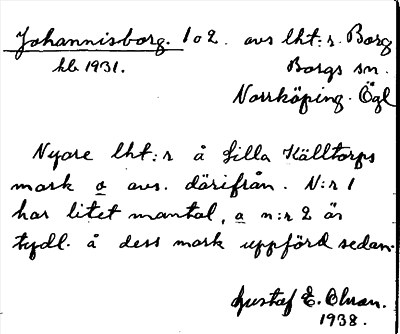 Johannisborg. 1 o 2. avs lht:r. Borg
hb. 1931. Borgs sn.
Norrköping. Ögl
Nyare lht:r å Lilla Källtorps
mark o avs. därifrån. N:r 1
har litet mantal, o n:r 2 är
tydl. å dess mark uppförd sedan.
Gustaf E. Olsson.
1938.